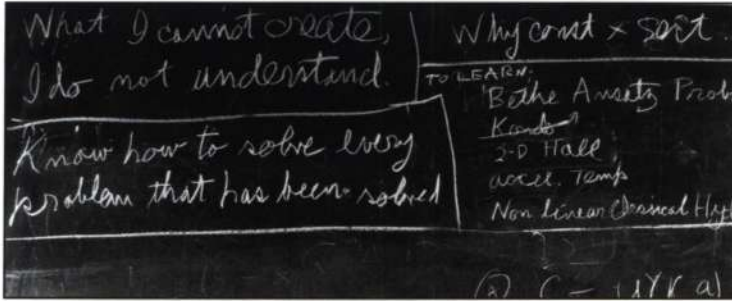 What I cannot create,
I do not understand.
Know how to solve every
problem that has been solved
Why const × sort .
TO LEARN:
Bethe Ansatz Prob
Kondo
2-D Hall
accel. Temp
Non linear Classical Hyd